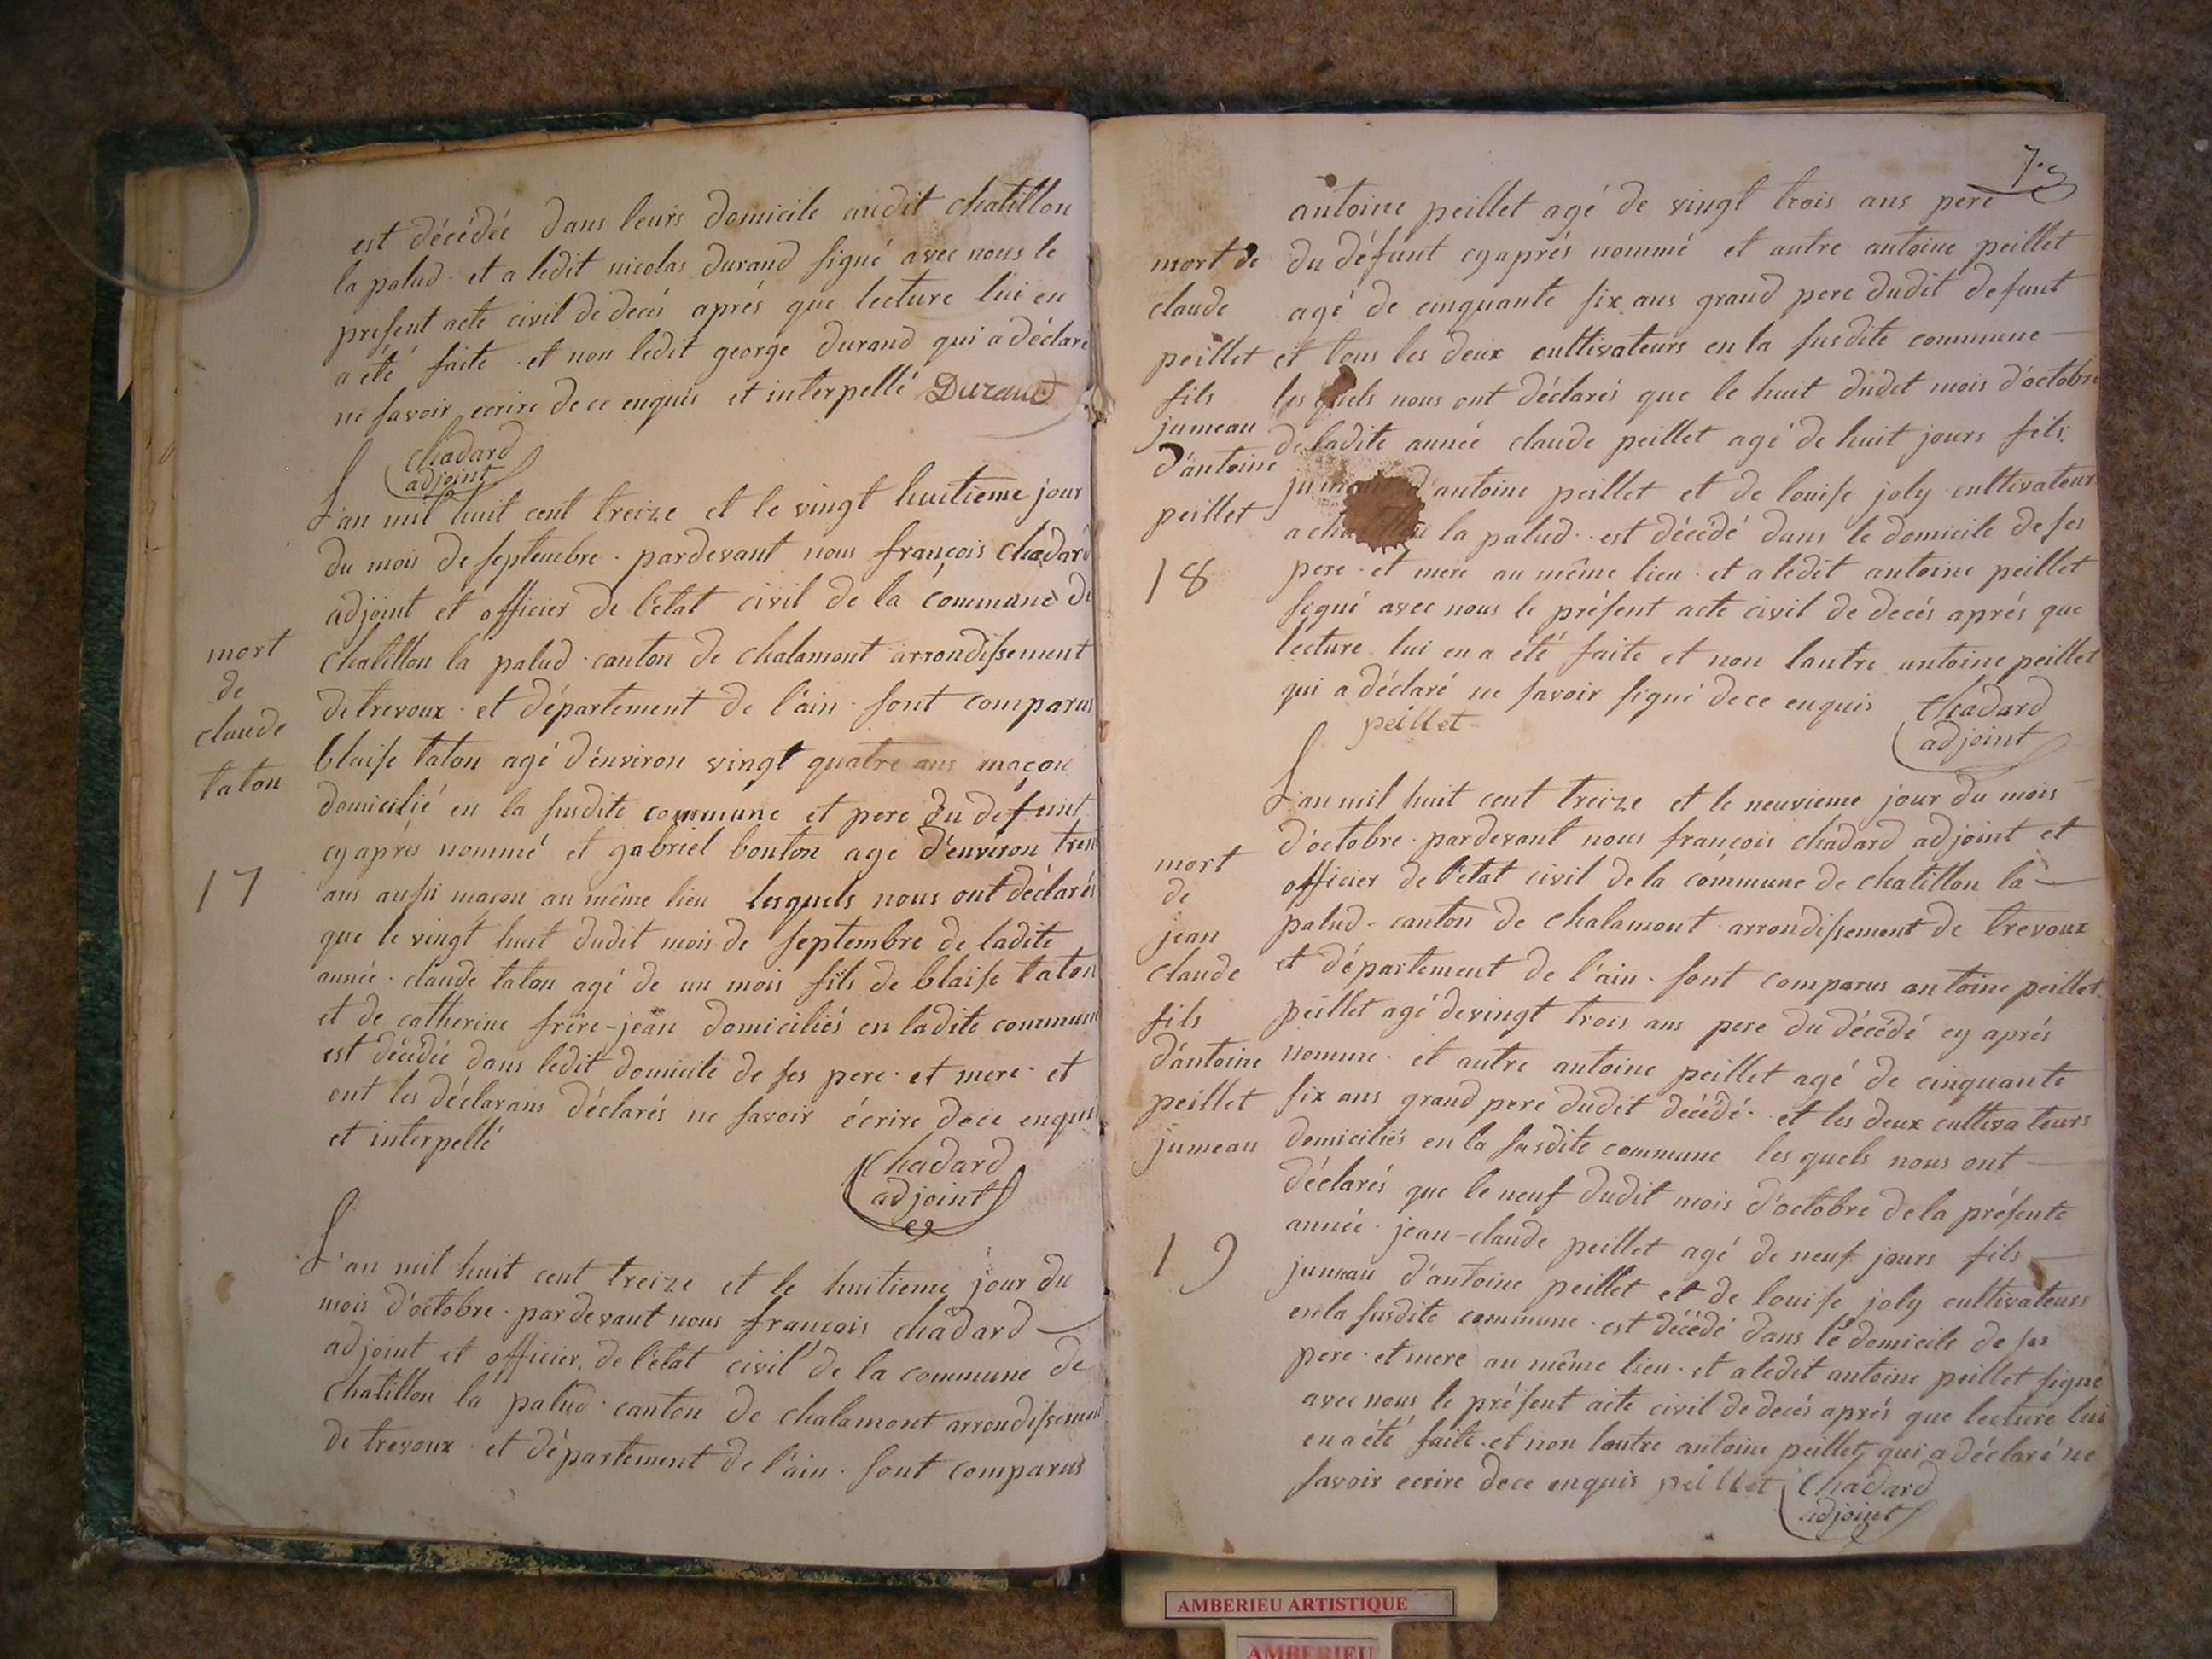 est décédée dans leurs domicile audit chatillon
la palud. et a ledit nicolas durand signé avec nous le
présent acte civil de decés aprés que lecture lui en
a été faite. et non ledit george durand qui a déclaré
ne savoir ecrire de ce enquis et interpellé Durand
Chadard
adjoint
L'an mil huit cent treize et le vingt huitieme jour
du mois de septembre. pardevant nous françois chadard
adjoint et officier de l'état civil de la commune de
mort
de
claude
taton
17
chatillon la palud. canton de chalamont arrondissement
de trevoux. et département de l'ain. sont comparus
blaise taton agé d'environ vingt quatre ans maçon
domicilié en la susdite commune et pere du defunt
cy aprés nommé et gabriel bouton age d'environ
ans aussi maçon au même lieu lesquels nous ont déclarés
que le vingt huit dudit mois de septembre de ladite
année. claude taton agé de un mois fils de blaise taton
et de catherine frere-jean domiciliés en ladite commune
est décédée dans ledit domicile de ses pere. et mere. et
ont les déclarans déclarés ne savoir écrire de ce enquis
et interpellé
Chadard
adjoint
L'an mil huit cent treize et le huitieme jour du
mois d'octobre. pardevant nous françois chadard
adjoint et officier de l'état civil de la commune de
chatillon la palud. canton de chalamont arrondissement
de trevoux. et département de l'ain. sont comparus
antoine peillet agé de vingt trois ans pere
mort de
claude
peillet
fils
jumeau
d'antoine
peillet
18
du défunt cy aprés nommé et autre antoine peillet
agé de cinquante six ans grand pere dudit defunt
et tous les deux cultivateurs en la susdite commune
les quels nous ont déclarés que le huit dudit mois d'octobre
de ladite année claude peillet agé de huit jours fils
jumeau d'antoine peillet et de louise joly cultivateurs
a la palud. est décédé dans le domicile de ses
pere. et mere au même lieu. et a ledit antoine peillet
signé avec nous le présent acte civil de decés aprés que
lecture lui en a été faite et non lautre antoine peillet
qui a déclaré ne savoir signé de ce enquis
peillet
Chadard
adjoint
L'an mil huit cent treize et le neuvieme jour du mois
d'octobre. pardevant nous françois chadard adjoint et
mort
de
jean
claude
fils
d'antoine
peillet
jumeau
19
officier de l'état civil de la commune de chatillon la
palud - canton de chalamont arrondissement de trevoux
et département de l'ain. sont comparus antoine peillet
peillet agé de vingt trois ans pere du décédé cy aprés
nomme. et autre antoine peillet agé de cinquante
six ans grand pere dudit décédé. et les deux cultivateurs
domiciliés en la susdite commune les quels nous ont
déclarés que le neuf dudit mois d'octobre de la présente
année. jean-claude peillet agé de neuf jours fils
jumeau d'antoine peillet et de louise joly cultivateurs
en la susdite commune. est décédé dans le domicile de ses
pere. et mere au même lieu. et a ledit antoine peillet signé
avec nous le présent acte civil de decés aprés que lecture lui
en a été faite. et non lautre antoine peillet, qui a déclaré ne
savoir ecrire de ce enquis peillet Chadard
adjoint
AMBERIEU ARTISTIQUE
AMBERIEU